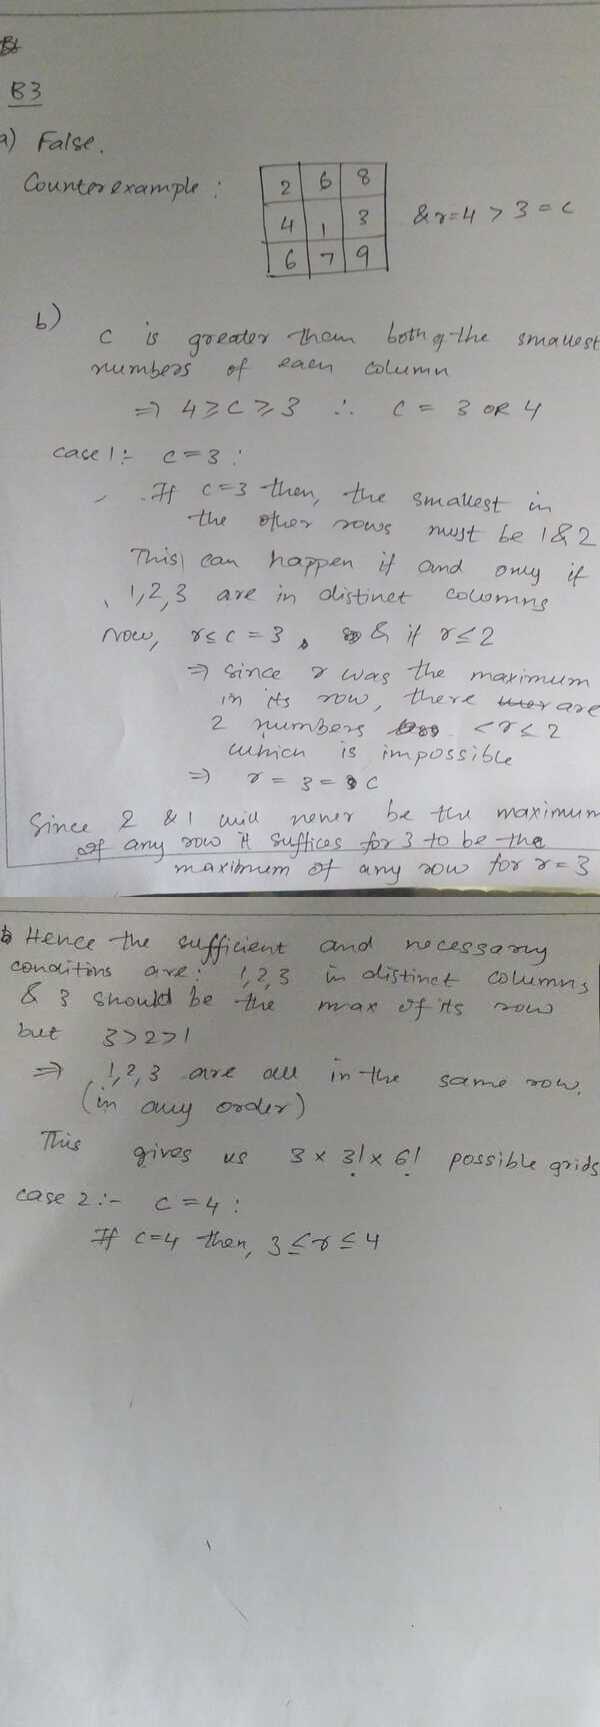 B3
a) False.
Counterexample :
2 6 8
4 1 3
6 7 9
& r=4 > 3 = c
b)
c is greater than both of the smallest
numbers of each column
⇒ 4 ≥ c ≥ 3 ∴ c = 3 OR 4
case 1:- c=3 :
If c=3 then, the smallest in
the other rows must be 1 & 2
This can happen if and only if
1,2,3 are in distinct columns
Now, r ≤ c = 3, & if r ≤ 2
⇒ since r was the maximum
in its row, there are
2 numbers < r ≤ 2
which is impossible
⇒ r = 3 = c
Since 2 & 1 will never be the maximum
of any row it suffices for 3 to be the
maximum of any row for r=3
Hence the sufficient and necessary
conditions are: 1,2,3 in distinct columns
& 3 should be the max of its row
but 3>2>1
⇒ 1,2,3 are all in the same row.
(in any order)
This gives us 3 × 3! × 6! possible grids
case 2:- c=4 :
If c=4 then, 3 ≤ r ≤ 4